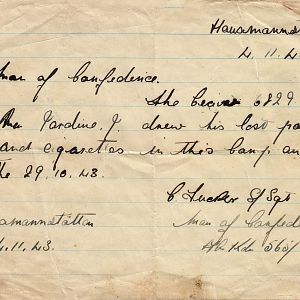 Hausmannst
4.11.4
man of Confedence.
The Bearer 6829
Jardine. J. drew his last pa
and cigarettes in this camp an
the 29.10.43.
C Tucker S/Sgt
amannstätten
4.11.43.
Man of Confede